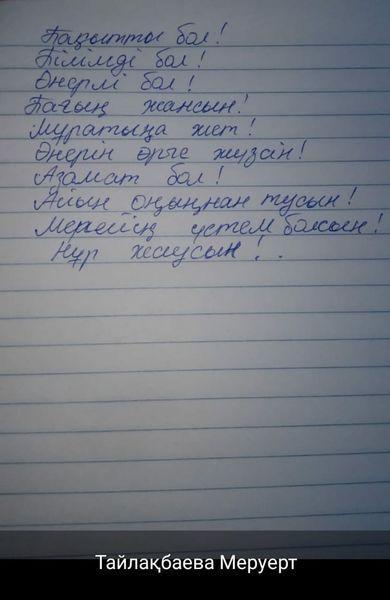 Бақытты бол!
Білімді бол!
Өнерлі бол!
Бағың жансын!
Мұратыңа жет!
Өнерің өрге жүзсін!
Азамат бол!
Айың оңыңнан тусын!
Мерейің үстем болсын!
Нұр жаусын! .
Тайлақбаева Меруерт